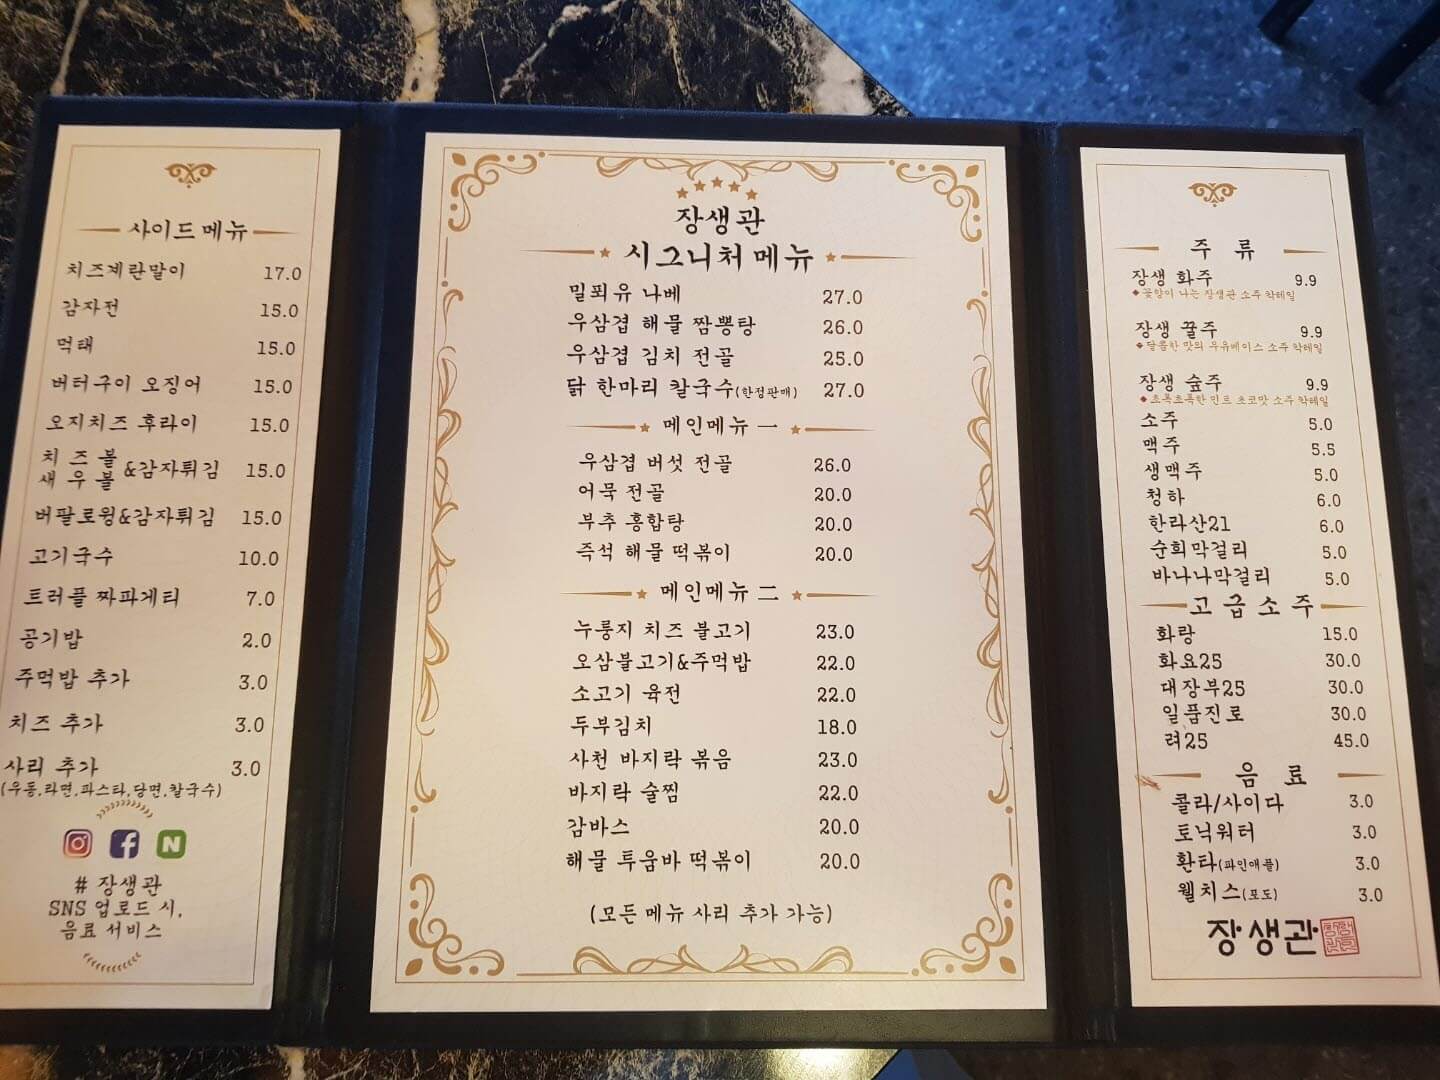 사이드 메뉴
치즈계란말이 17.0
감자전 15.0
먹태 15.0
버터구이 오징어 15.0
오지치즈 후라이 15.0
치즈볼
새우볼 &감자튀김 15.0
버팔로윙&감자튀김 15.0
고기국수 10.0
트러플 짜파게티 7.0
공기밥 2.0
주먹밥 추가 3.0
치즈 추가 3.0
사리 추가 3.0
(우동,라면,파스타,당면,칼국수)
# 장생관
SNS 업로드 시,
음료 서비스
장생관
시그니처 메뉴
밀푀유 나베 27.0
우삼겹 해물 짬뽕탕 26.0
우삼겹 김치 전골 25.0
닭 한마리 칼국수(한정판매) 27.0
메인메뉴 一
우삼겹 버섯 전골 26.0
어묵 전골 20.0
부추 홍합탕 20.0
즉석 해물 떡볶이 20.0
메인메뉴 二
누룽지 치즈 불고기 23.0
오삼불고기&주먹밥 22.0
소고기 육전 22.0
두부김치 18.0
사천 바지락 볶음 23.0
바지락 술찜 22.0
감바스 20.0
해물 투움바 떡볶이 20.0
(모든 메뉴 사리 추가 가능)
주 류
장생 화주 9.9
꽃향이 나는 장생관 소주 칵테일
장생 꿀주 9.9
달콤한 맛의 우유베이스 소주 칵테일
장생 숲주 9.9
초록초록한 민트 초코맛 소주 칵테일
소주 5.0
맥주 5.5
생맥주 5.0
청하 6.0
한라산21 6.0
순희막걸리 5.0
바나나막걸리 5.0
고급소주
화랑 15.0
화요25 30.0
대장부25 30.0
일품진로 30.0
려25 45.0
음 료
콜라/사이다 3.0
토닉워터 3.0
환타(파인애플) 3.0
웰치스(포도) 3.0
장생관